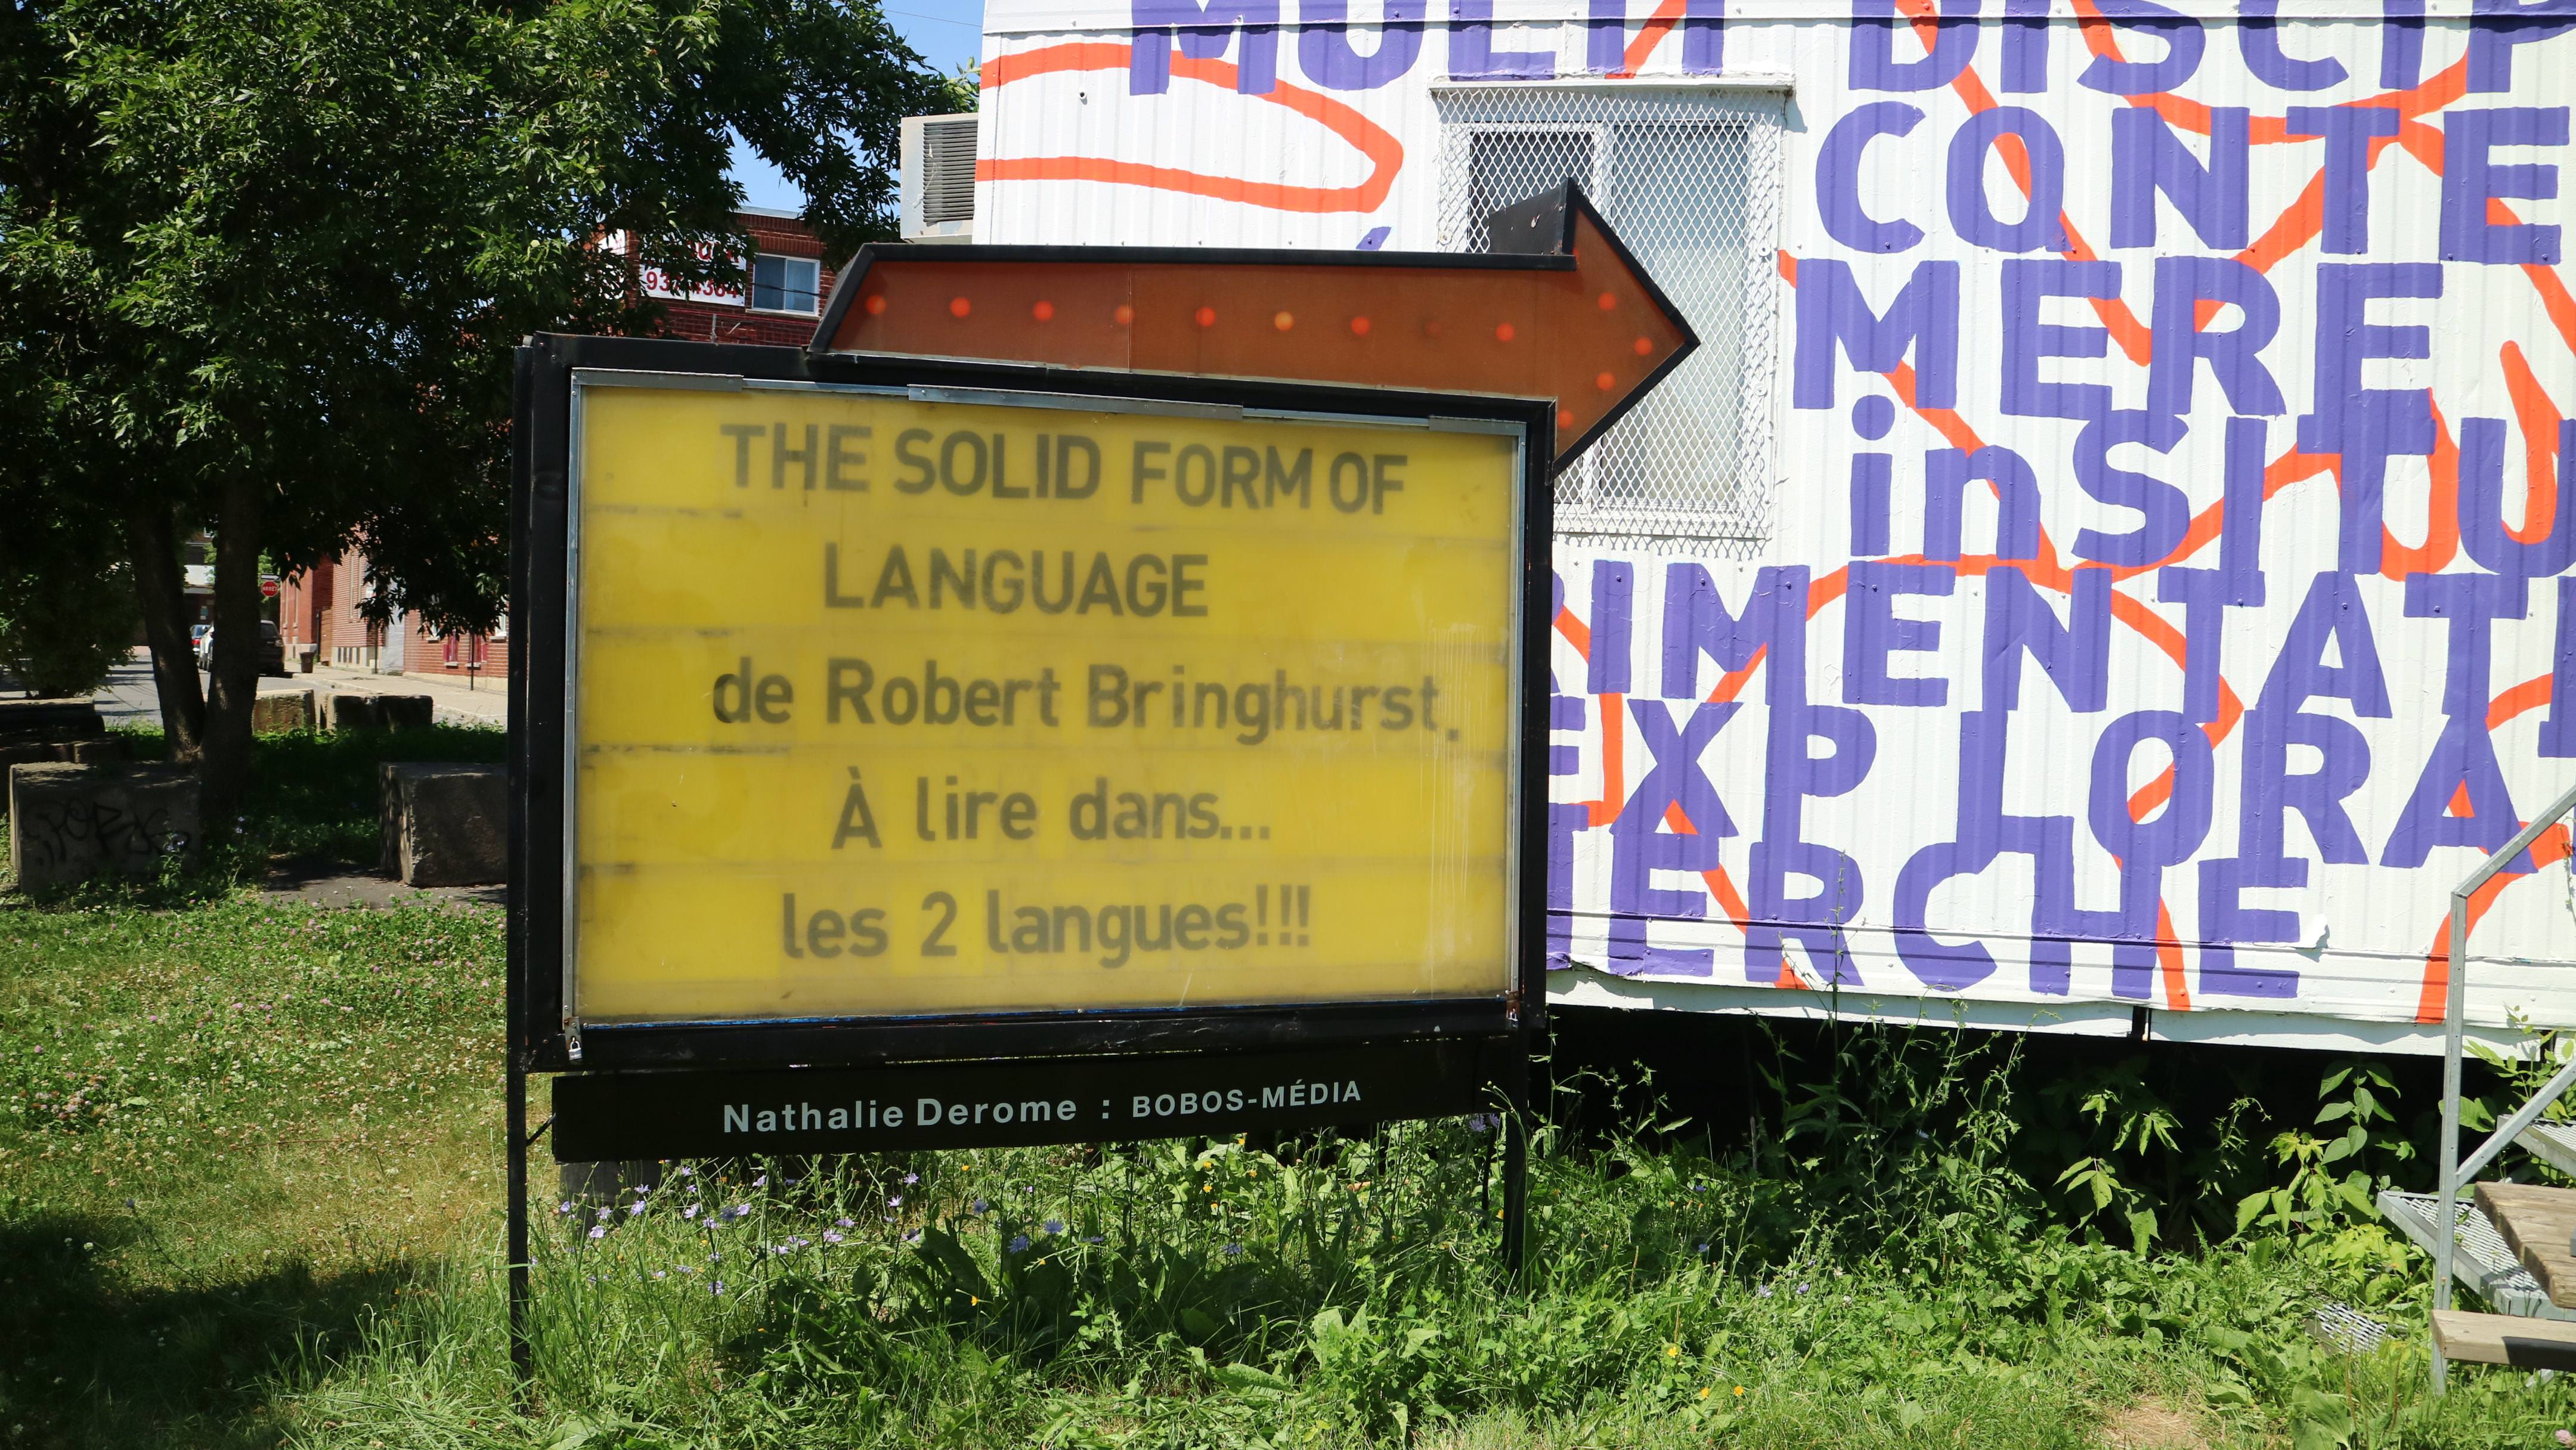 THE SOLID FORM OF
LANGUAGE
de Robert Bringhurst.
À lire dans...
les 2 langues!!!
Nathalie Derome : BOBOS-MÉDIA
MULTI DISCIP
CONTE
MERE
inSITU
RIMENTATI
EXPLORA
HERCHE